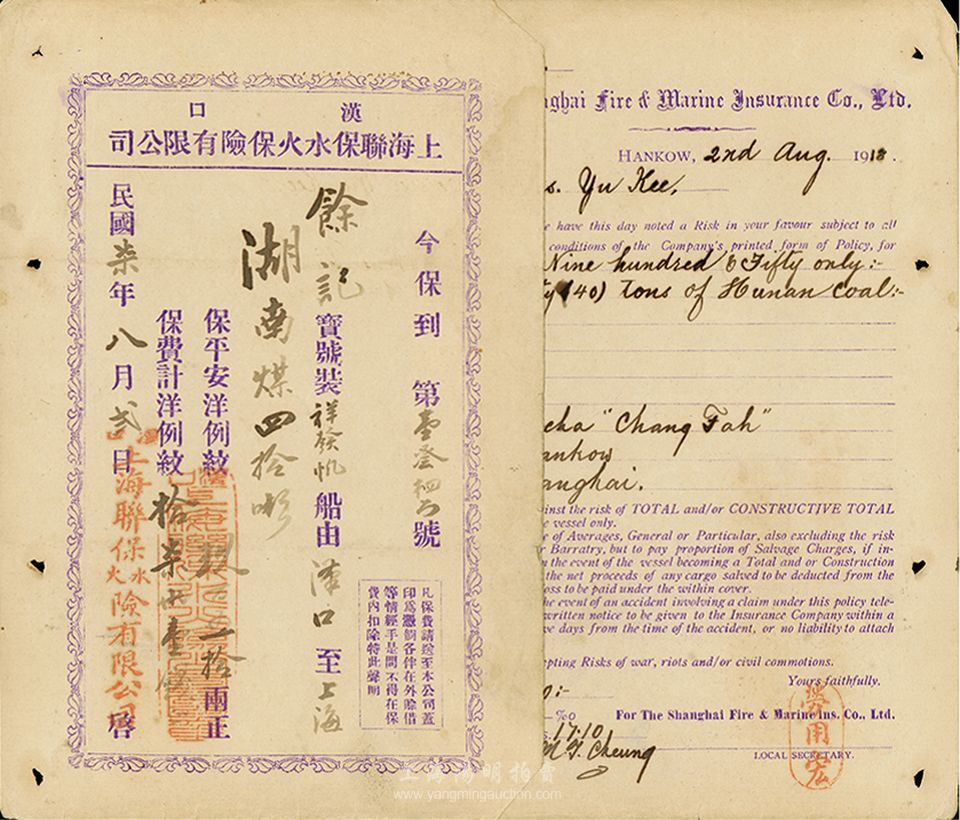 漢口
上海聯保水火保險有限公司
今保到 第壹叁號
餘記寶號裝祥發帆船由漢口至上海
湖南煤四拾
保平安洋例紋一拾兩正
保費計洋例紋拾柒壹
民國柒年八月弍日
上海聯保水火險有限公司啓
凡保費請送至本公司蓋
印爲憑倘各伴在外賒借
等情經手是問不得在保
費內扣除特此聲明
nghai Fire & Marine Insurance Co., Ltd.
HANKOW, 2nd Aug. 1918.
s. Yu Kee,
e have this day noted a Risk in your favour subject to all
conditions of the Company's printed form of Policy, for
Nine hundred & Fifty only:-
ty (40) tons of Hunan coal:-
cha "Chang Fah"
ankow
anghai.
ainst the risk of TOTAL and/or CONSTRUCTIVE TOTAL
e vessel only.
e of Averages, General or Particular, also excluding the risk
r Barratry, but to pay proportion of Salvage Charges, if in-
n the event of the vessel becoming a Total and/or Construction
the net proceeds of any cargo salved to be deducted from the
oss to be paid under the within cover.
he event of an accident involving a claim under this policy tele-
written notice to be given to the Insurance Company within a
ve days from the time of the accident, or no liability to attach
epting Risks of war, riots and/or civil commotions.
Yours faithfully.
0:-
%0 For The Shanghai Fire & Marine Ins. Co., Ltd.
17.10
M. T. Cheung
LOCAL SECRETARY.
上海陽明拍賣
www.yangmingauction.com